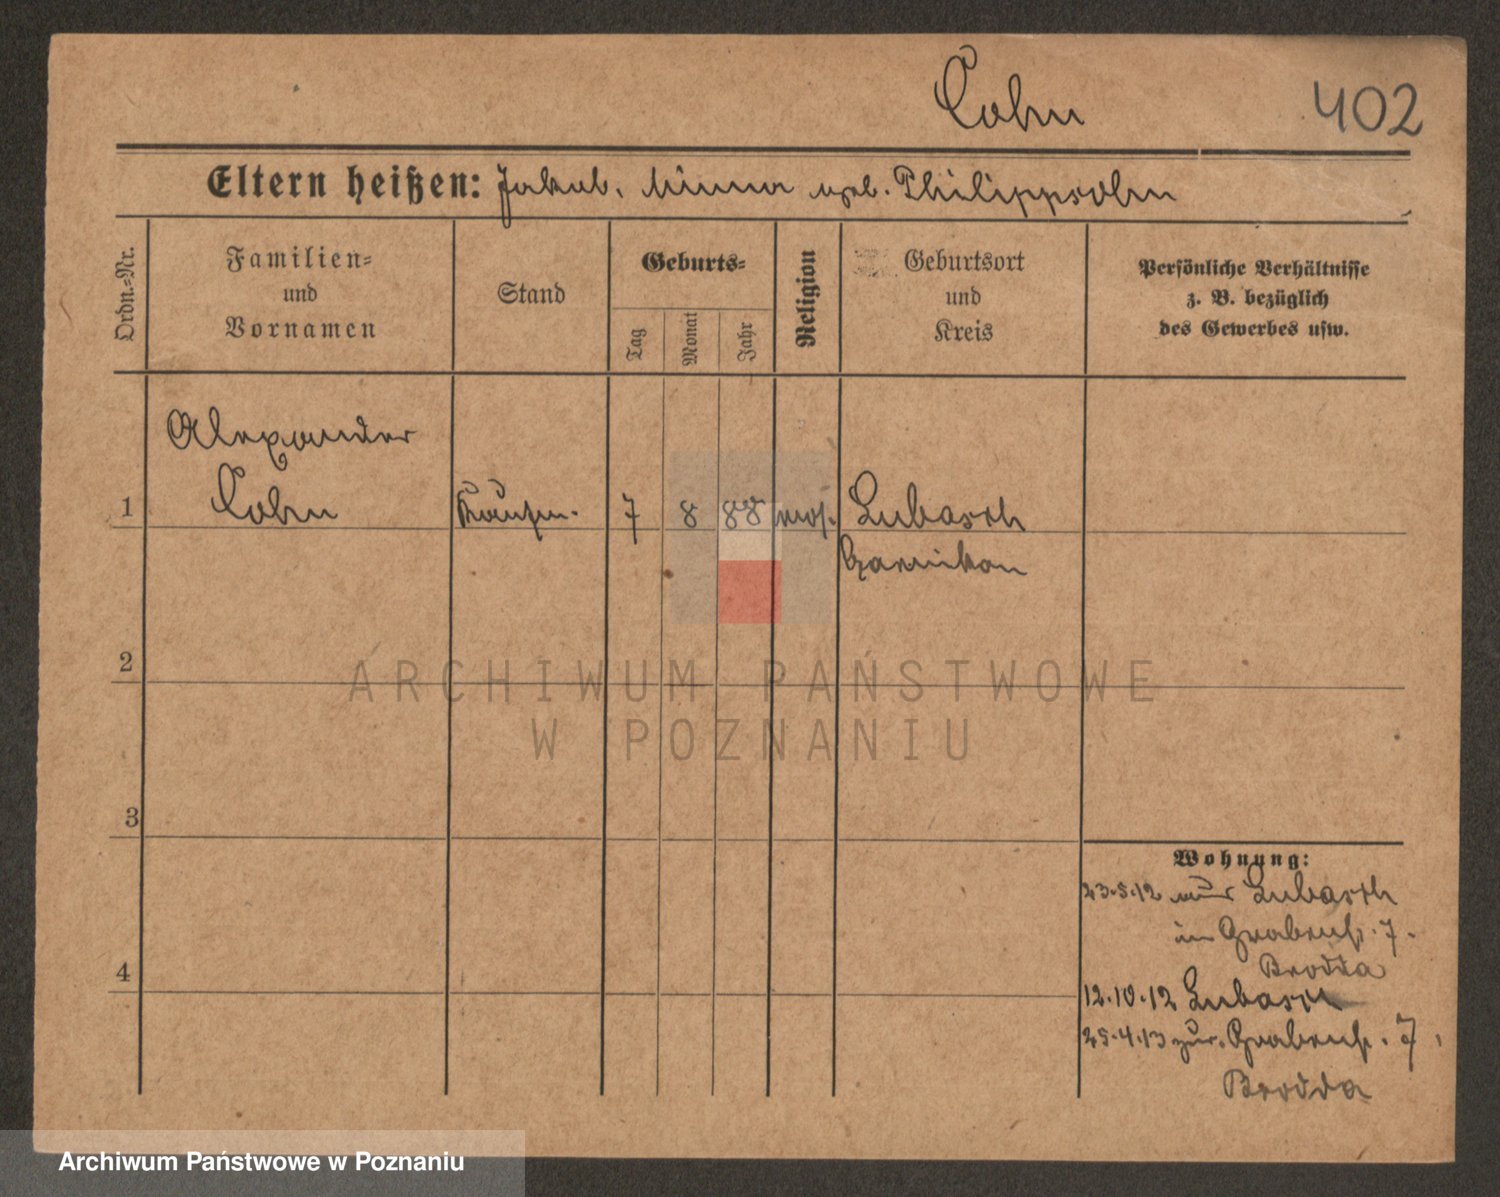 Cohn 402
Eltern heißen: Jakob, Minna geb. Philippsohn
Ordn.-Nr.
Familien-
und
Vornamen
Stand
Geburts-
Tag
Monat
Jahr
Religion
Geburtsort
und
Kreis
Persönliche Verhältnisse
z. B. bezüglich
des Gewerbes usw.
Alexander
1 Cohn Kaufm. 7 8 88 mos. Lubasch
Czarnikau
2
ARCHIWUM PAŃSTWOWE
W POZNANIU
3
Wohnung:
23.5.12 aus Lubasch
in Grabenst. 7.
Brodda
4
12.10.12 Lubasch
25.4.13 zur. Grabenst. 7,
Brodda
Archiwum Państwowe w Poznaniu